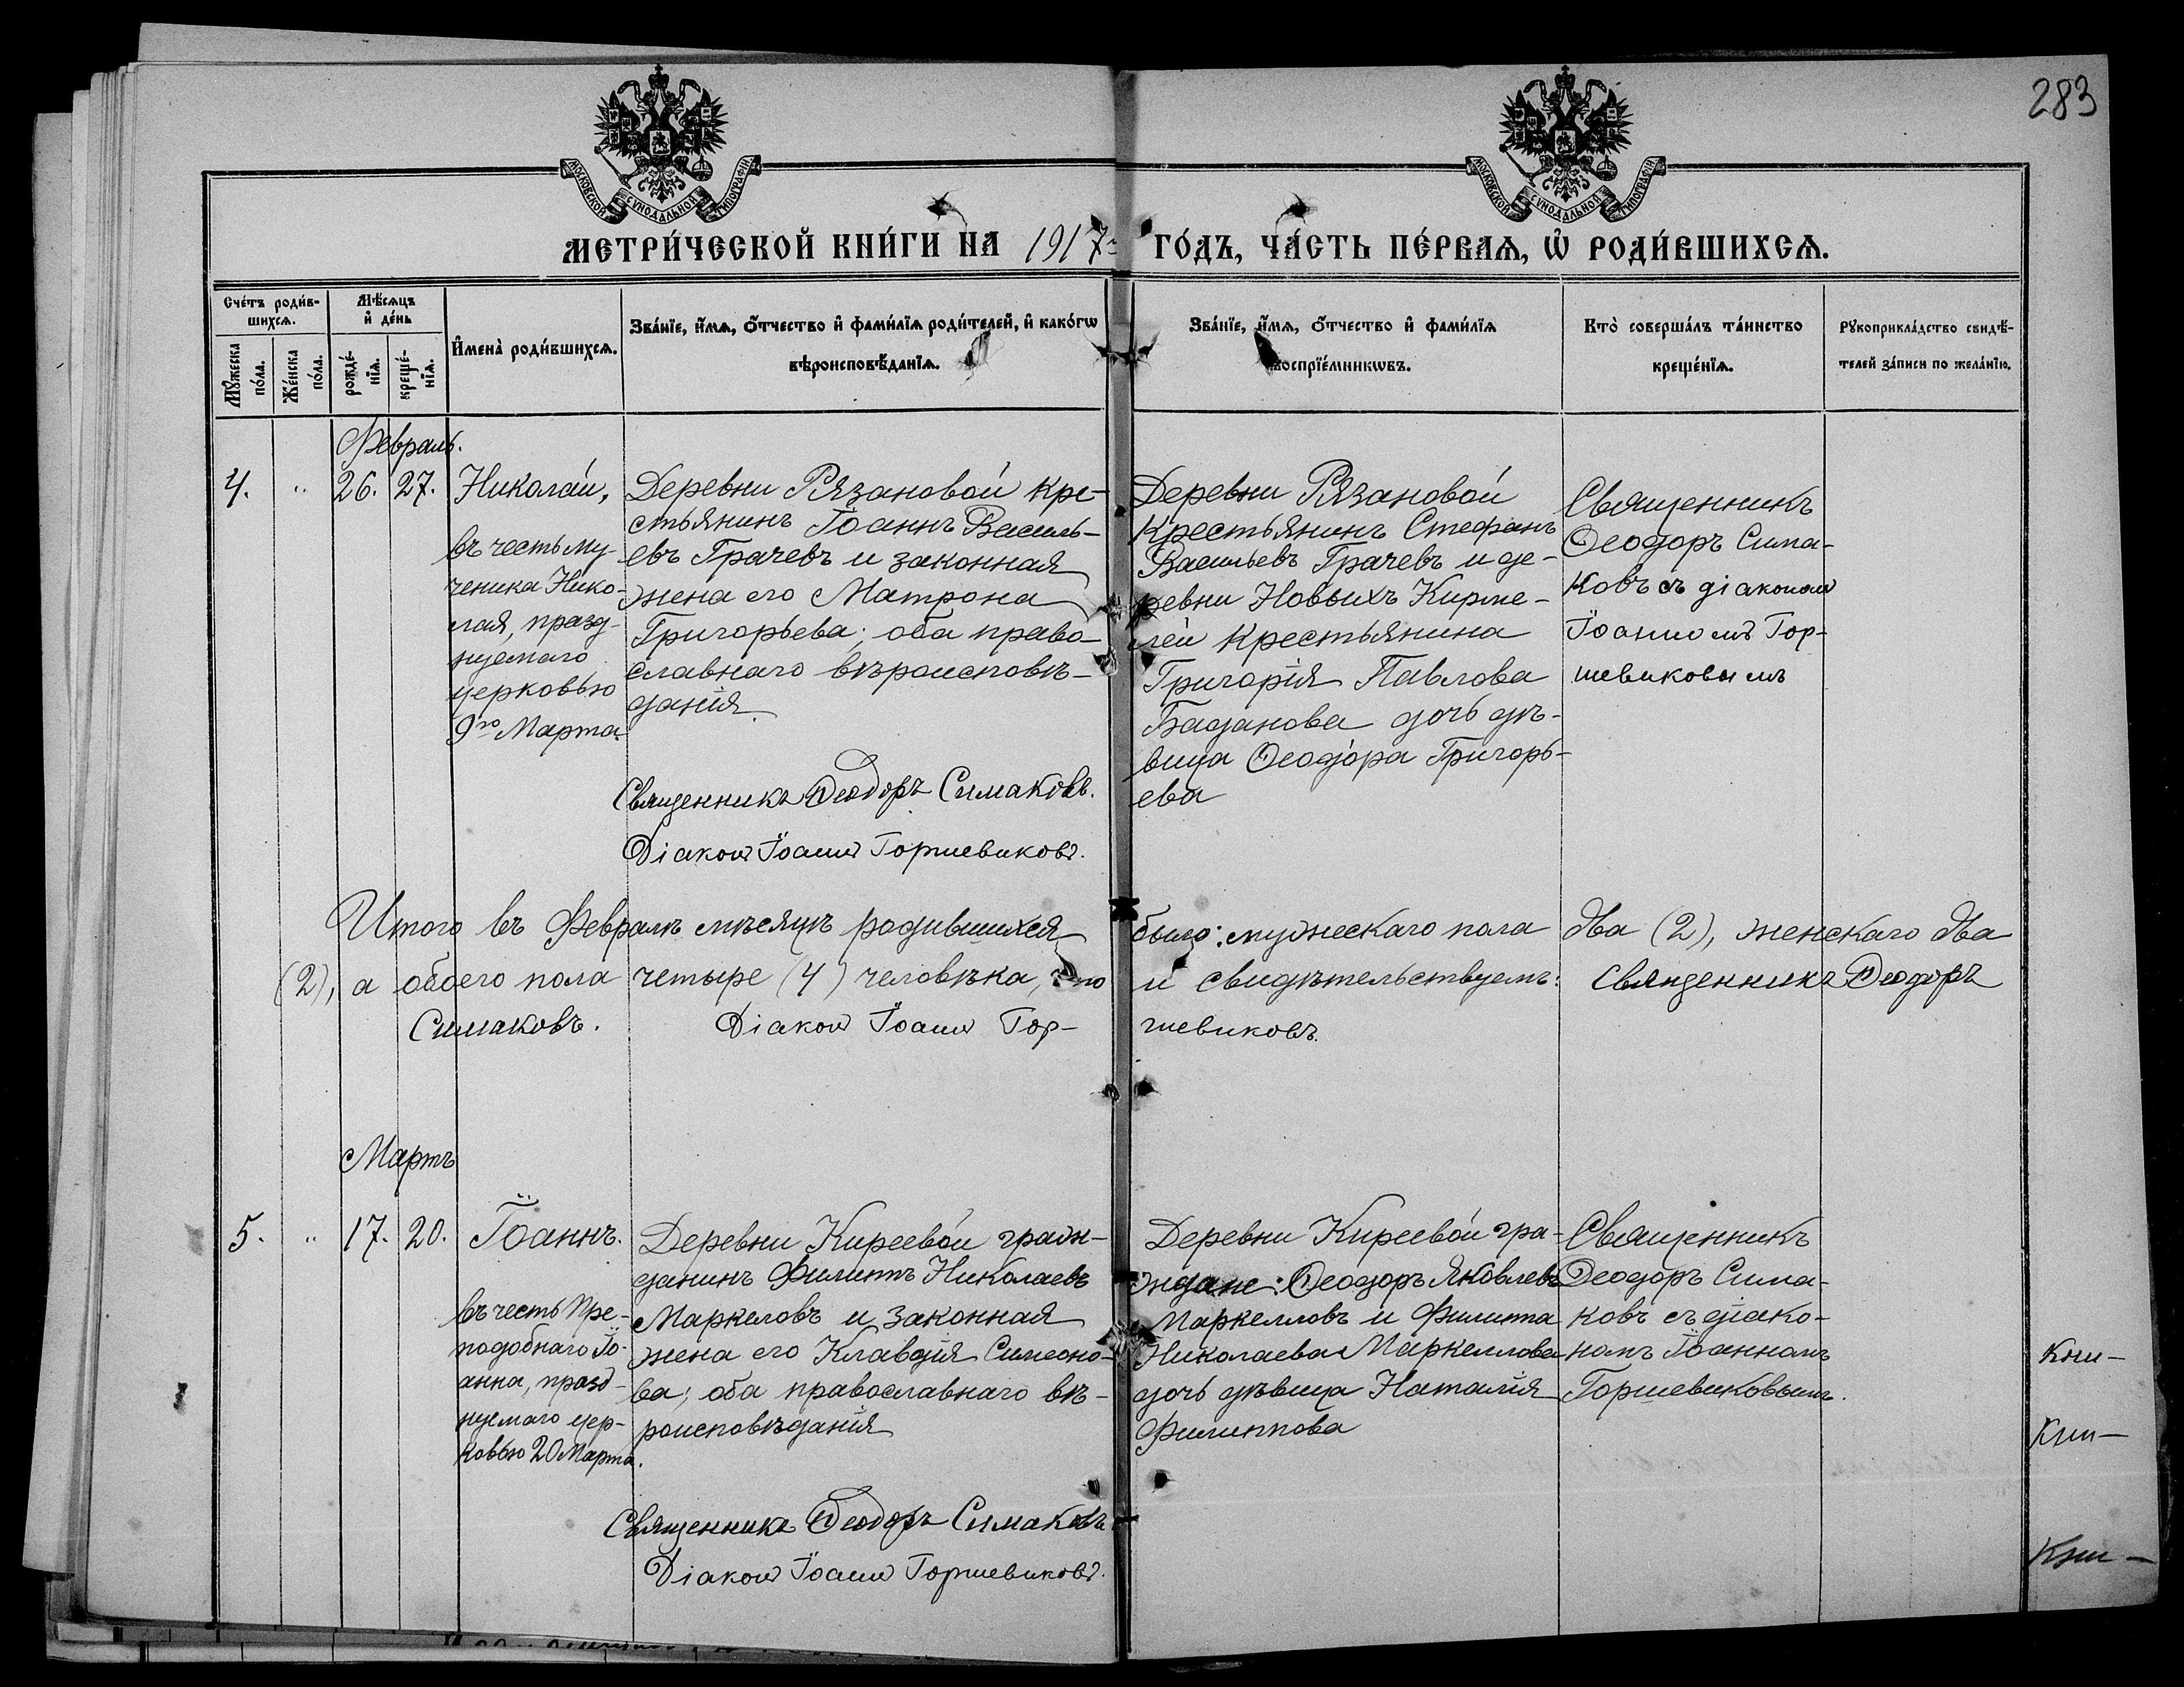 283
МОСКОВСКОЙ СѴНОДАЛЬНОЙ ТИПОГРАФІИ
МОСКОВСКОЙ СѴНОДАЛЬНОЙ ТИПОГРАФІИ
МЕТРИ́ЧЕСКОЙ КНИ́ГИ НА 1917 ГО́ДЪ, ЧА́СТЬ ПЕ́РВАѦ, Ѡ҆ РОДИ́ВШИХСѦ.
Сче́тъ роди́в-
шихсѧ.
Мꙋ́жеска
по́ла.
Же́нска
по́ла.
Мѣ́сѧцъ
и҆ де́нь
рожде́-
нїѧ.
креще́-
нїѧ.
И҆мена̀ роди́вшихсѧ.
Зва́нїе, и҆́мѧ, ѻ҆́тчество и҆ фами́лїѧ роди́телей, и҆ како́гѡ
вѣроисповѣ́данїѧ.
Зва́нїе, и҆́мѧ, ѻ҆́тчество и҆ фами́лїѧ
воспрїе́мникѡвъ.
Кто̀ соверша́лъ та́инство
креще́нїѧ.
Рꙋкоприкла́дство свидѣ́-
телей за́писи по жела́нїю.
Февраль.
4. " 26. 27.
Николай,
въ честь му-
ченика Нико-
лая, празд-
нуемаго
церковью
9го Марта.
Деревни Рязановой кре-
стьянинъ Іоаннъ Василь-
евъ Грачевъ и законная
жена его Матрона
Григорьева; оба право-
славнаго вѣроисповѣ-
данія.
Священникъ Ѳеодоръ Симаковъ.
Діаконъ Іоаннъ Горшевиковъ.
Деревни Рязановой
крестьянинъ Стефанъ
Васильевъ Грачевъ и де-
ревни Новыхъ Кирме-
лей крестьянина
Григорія Павлова
Баданова дочь дѣ-
вица Ѳеодора Григорь-
ева
Священникъ
Ѳеодоръ Сима-
ковъ съ діакономъ
Іоанномъ Гор-
шевиковымъ
Итого въ Февралѣ мѣсяцѣ родившихся было: мужескаго пола два (2), женскаго два
(2), а обоего пола четыре (4) человѣка, что и свидѣтельствуемъ: Священникъ Ѳеодоръ
Симаковъ. Діаконъ Іоаннъ Гор- шевиковъ.
Мартъ
5. " 17. 20.
Іоаннъ.
въ честь Пре-
подобнаго Іо-
анна, празд-
нуемаго цер-
ковью 20 Марта.
Деревни Киреевой граж-
данинъ Филиппъ Николаевъ
Маркеловъ и законная
жена его Клавдія Симеоно-
ва; оба православнаго вѣ-
роисповѣданія
Священникъ Ѳеодоръ Симаковъ
Діаконъ Іоаннъ Горшевиковъ.
Деревни Киреевой гра-
ждане: Ѳеодоръ Яковлевъ
Маркелловъ и Филиппа
Николаева Маркеллова
дочь дѣвица Наталія
Филиппова
Священникъ
Ѳеодоръ Сима-
ковъ съ діако-
номъ Іоанномъ
Горшевиковымъ.